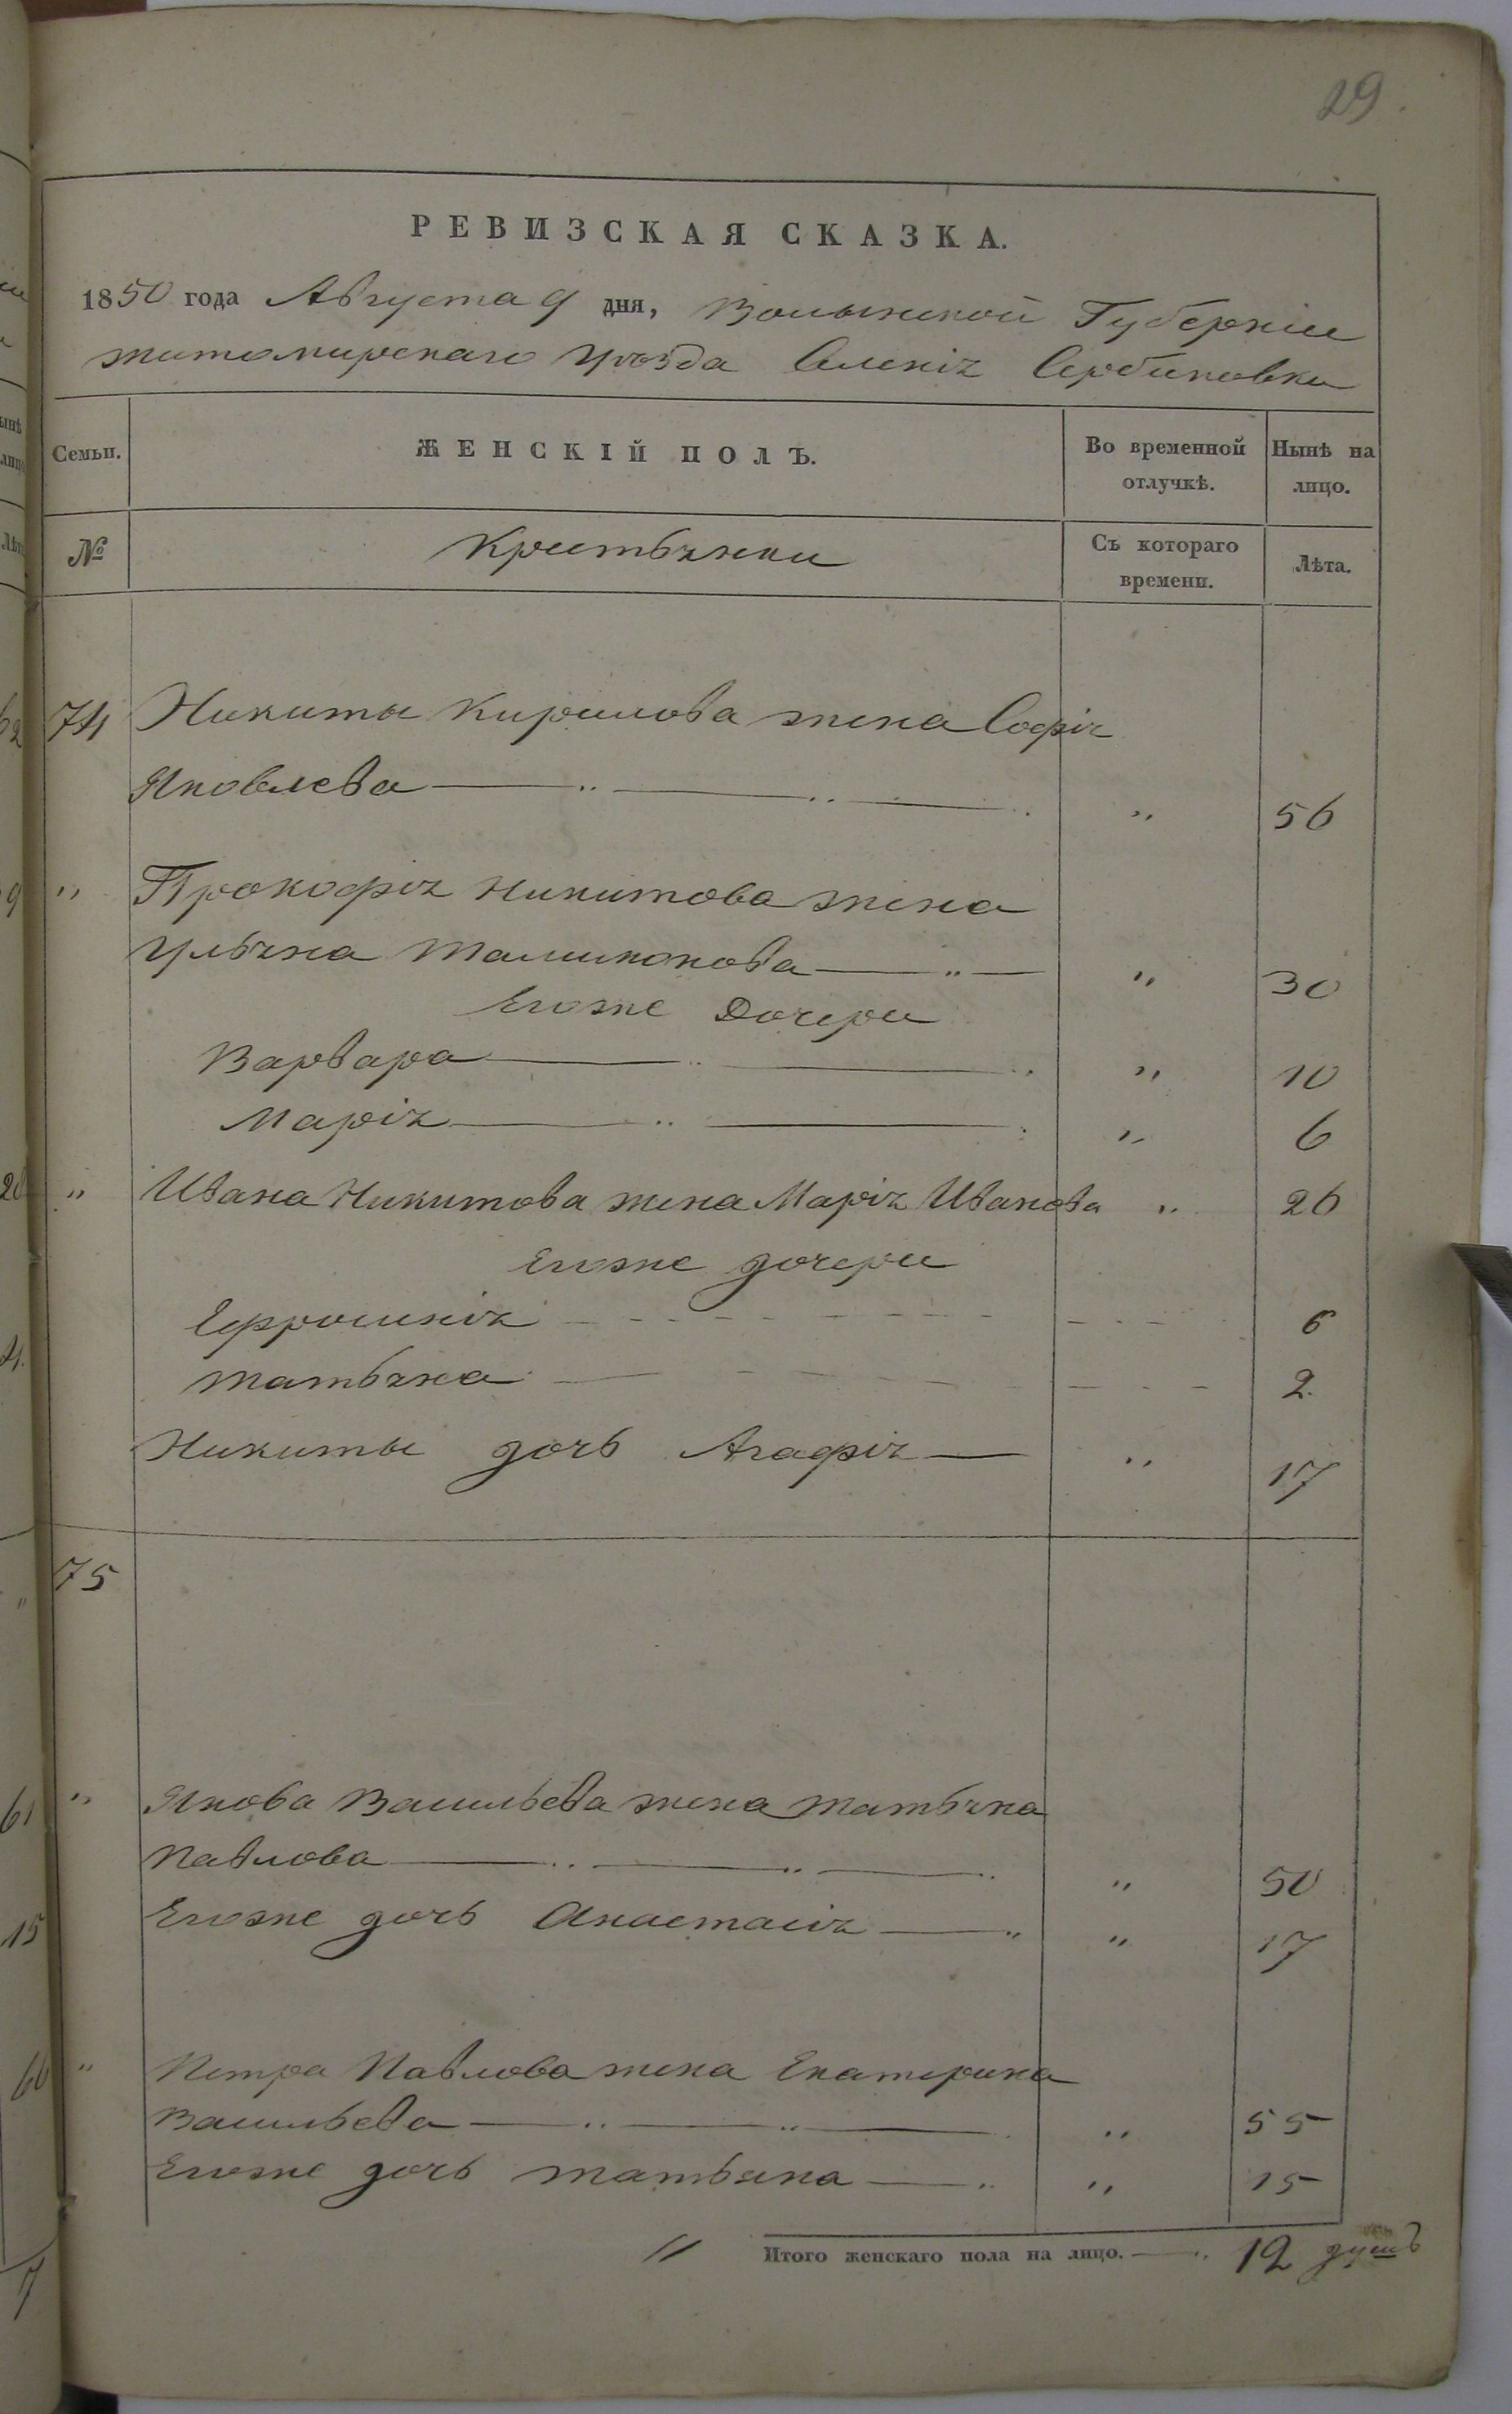 29.
РЕВИЗСКАЯ СКАЗКА.
1850 года Августа 9 дня, Волынской Губерніи
Житомирскаго уѣзда Селенія Сербиновки
Семьи. ЖЕНСКІЙ ПОЛЪ. Во временной отлучкѣ. Нынѣ на лицо.
№ Крестьянки Съ котораго времени. Лѣта.
74 Никиты Кирилова жена Софія
Яковлева — „ — „ — „ 56
„ Прокофія Никитова жена
Ульяна — „ — „ 30
Егоже Дочери
Варвара — „ — „ 10
Марія — „ — „ 6
„ Ивана Никитова жена Марія Иванова „ 26
Егоже дочери
Ефросинія — 6
Татьяна — 2
Никиты дочь Агафія — „ 17
75
„ Якова Васильева жена Татьяна
Павлова — „ — „ — „ 50
Егоже дочь Анастасія — „ „ 17
„ Петра Павлова жена Екатерина
Васильева — „ — „ — „ 55
Егоже дочь Татьяна — „ „ 15
Итого женскаго пола на лицо. — „ 12 душъ